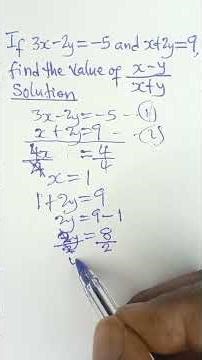 If 3x-2y=-5 and x+2y=9,
find the value of x-y/x+y
Solution
3x-2y=-5 -(1)
x+2y=9 -(2)
4x/4 = 4/4
x=1
1+2y=9
2y=9-1
2y/2=8/2